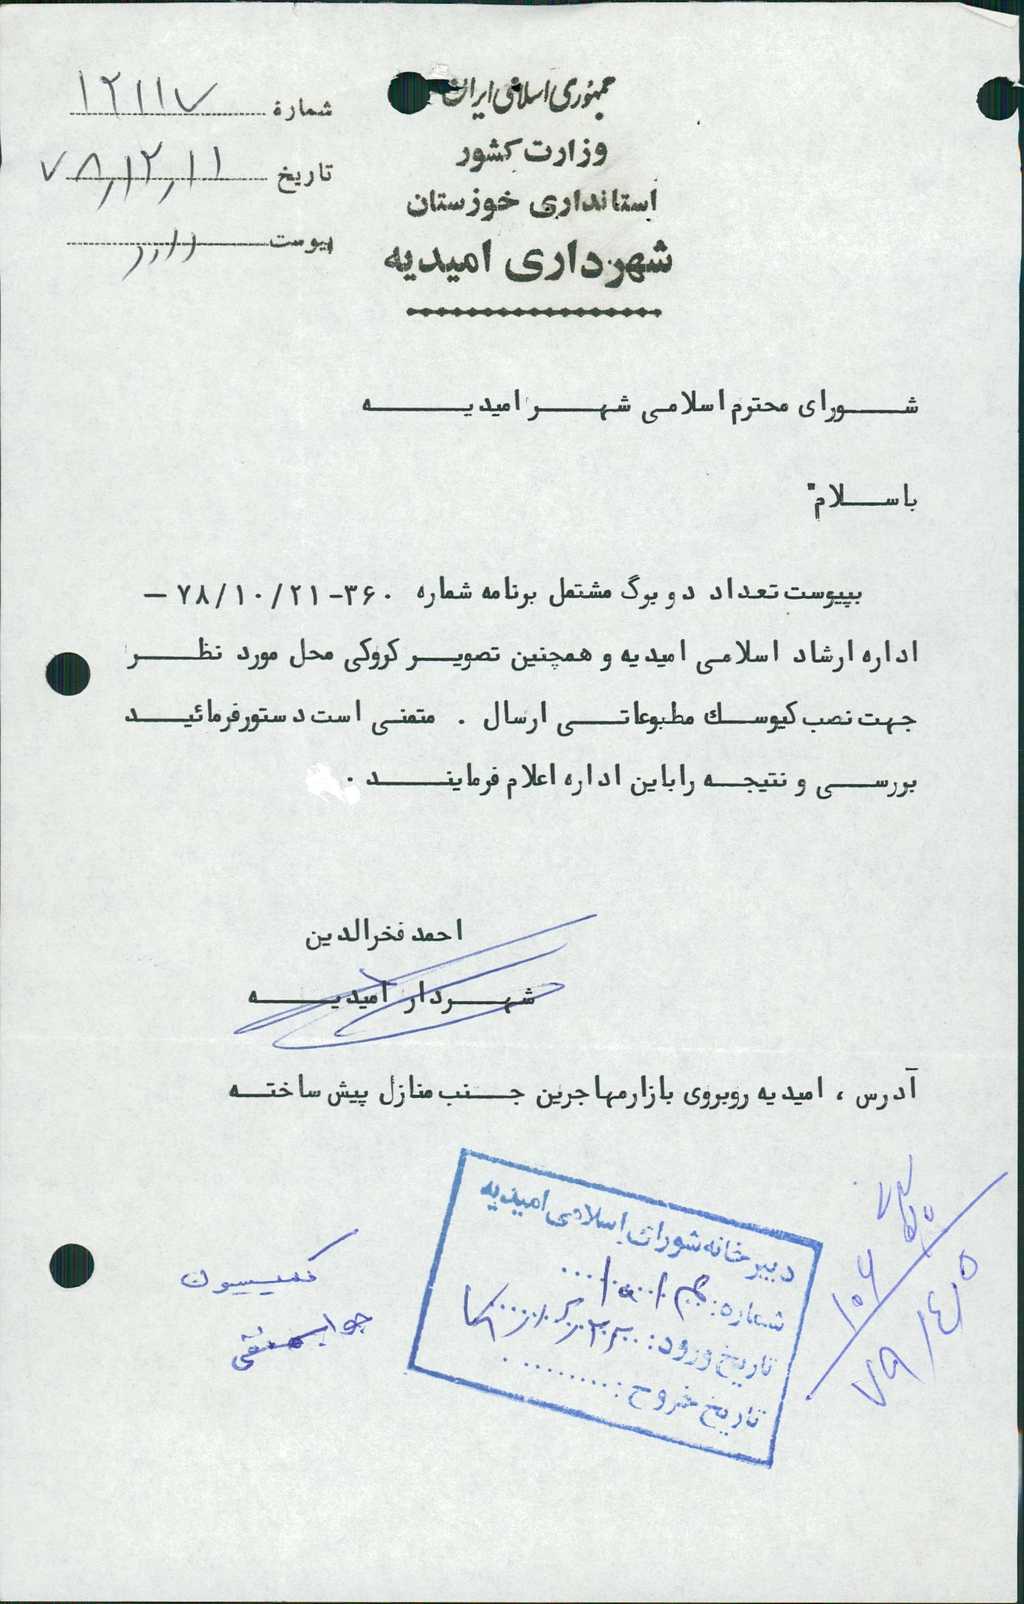 جمهوری اسلامی ایران
وزارت کشور
استانداری خوزستان
شهرداری امیدیه
شماره ۱۲۱۱۷
تاریخ ۷۸,۱۲,۱۱
پیوست دارد
شورای محترم اسلامی شهر امیدیه
باسلام
بپیوست تعداد دو برگ مشتمل برنامه شماره ۳۶۰-۷۸/۱۰/۲۱ –
اداره ارشاد اسلامی امیدیه و همچنین تصویر کروکی محل مورد نظر
جهت نصب کیوسک مطبوعاتی ارسال . متمنی است دستور فرمائید
بررسی و نتیجه را باین اداره اعلام فرمایند .
احمد فخرالدین
شهردار امیدیه
آدرس ، امیدیه روبروی بازار مهاجرین جنب منازل پیش ساخته
دبیرخانه شورای اسلامی امیدیه
شماره:
تاریخ ورود:
تاریخ خروج:
کمیسیون
۱۰۶
۷۹/۴/۵